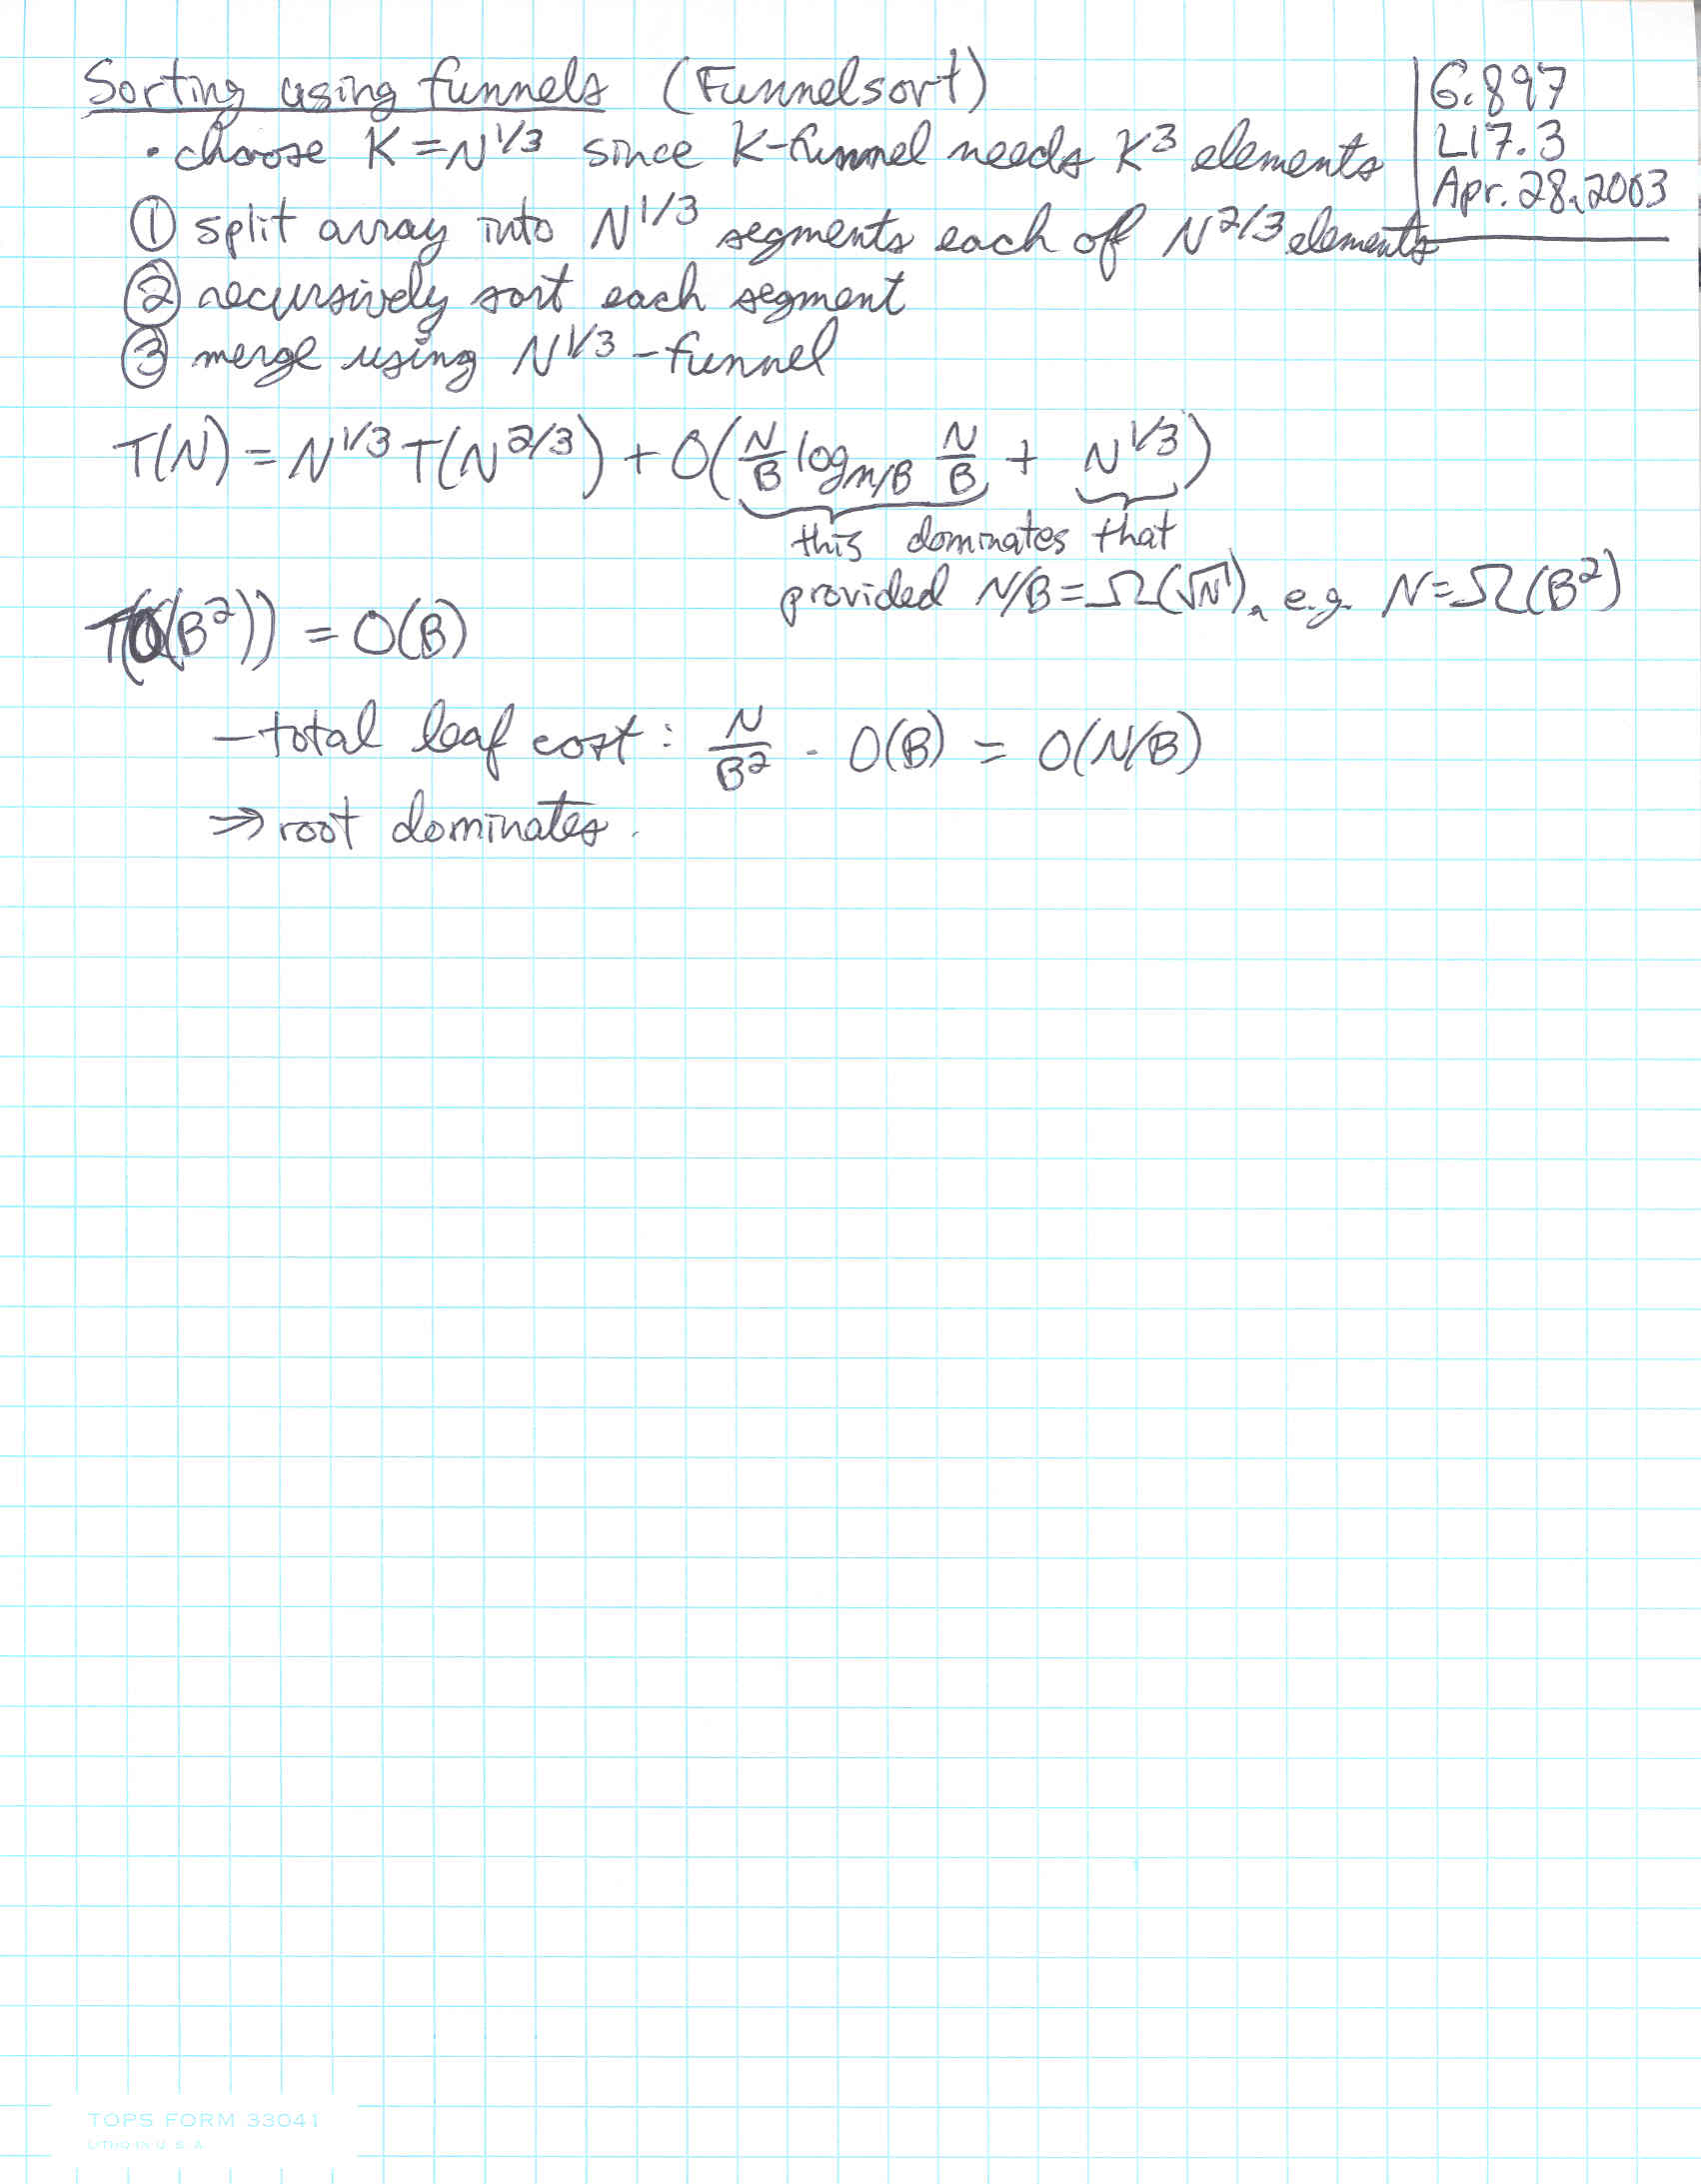 Sorting using funnels (Funnelsort)
6.897
L17.3
Apr. 28, 2003
• choose K = N^1/3 since K-funnel needs K^3 elements
① split array into N^1/3 segments each of N^2/3 elements
② recursively sort each segment
③ merge using N^1/3-funnel
T(N) = N^1/3 T(N^2/3) + O(N/B log_M/B N/B + N^1/3)
this dominates that
provided N/B = Ω(√N), e.g. N = Ω(B^2)
T(O(B^2)) = O(B)
- total leaf cost: N/B^2 · O(B) = O(N/B)
⇒ root dominates.
TOPS FORM 33041
LITHO IN U. S. A.